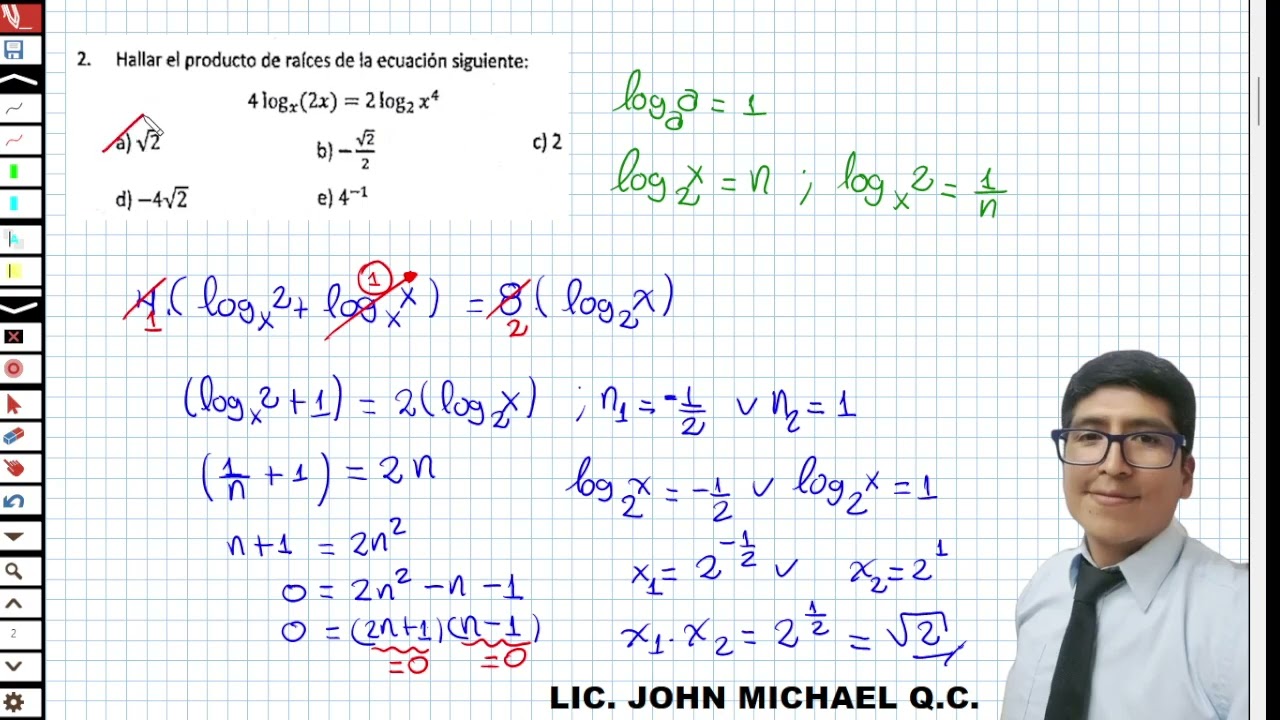 2. Hallar el producto de raíces de la ecuación siguiente:
4 logₓ(2x) = 2 log₂ x⁴
a) √2 b) −√2/2 c) 2
d) −4√2 e) 4⁻¹
logₐ a = 1
log₂ x = n ; logₓ 2 = 1/n
4.(logₓ 2 + logₓ x) = 8(log₂ x)
1 1 2
(logₓ 2 + 1) = 2(log₂ x) ; n₁ = -1/2 ∨ n₂ = 1
(1/n + 1) = 2n
log₂ x = -1/2 ∨ log₂ x = 1
n+1 = 2n²
x₁ = 2^(-1/2) ∨ x₂ = 2¹
0 = 2n² - n - 1
0 = (2n+1)(n-1)
=0 =0
x₁ . x₂ = 2^(1/2) = √2
LIC. JOHN MICHAEL Q.C.
2